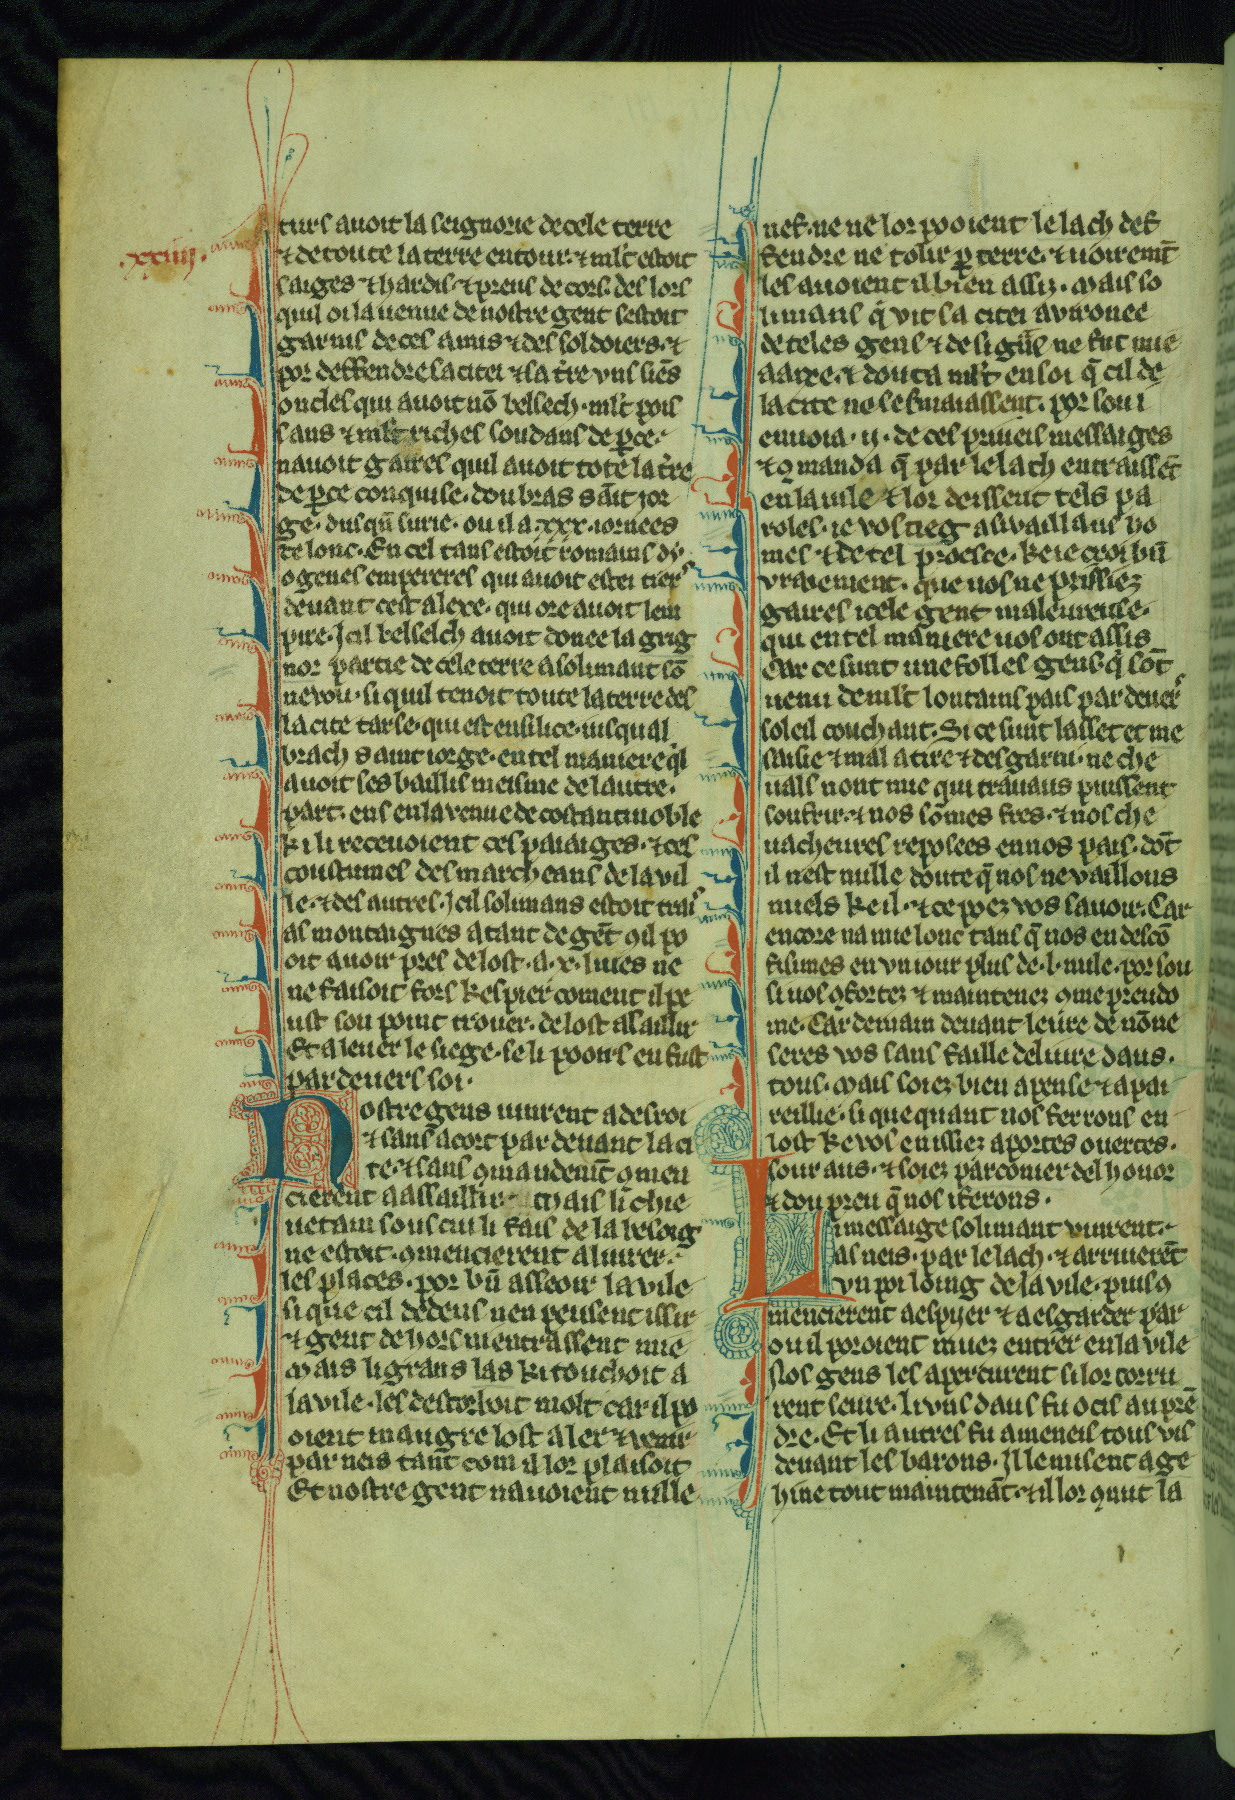 .xxiiii.
turs auoit la seignorie de cele terre
⁊ de toute la terre entour. ⁊ ml't estoit
saiges ⁊ hardis. ⁊ preus de cors. des lors
quil oi la uenue de nostre gent sestoit
garnis de ces amis ⁊ des soldoiers. ⁊
por deffendre sa citei ⁊ sa t're vns siēs
oncles qui auoit nō belsech. ml't pois
sans ⁊ ml't riches soudans de ꝑce.
nauoit gaires quil auoit tote la t're
de ꝑce conquise. dou bras saīt jor
ge. dusqū surie. ou il a .xxx. iornees
de lonc. En cel tans estoit romains dy
ogenes empereres qui auoit estei tiers
deuant cest alexe. qui ore auoit lem
pire. Icil belselch auoit donee la grig
nor partie de cele terre a solimant sō
neuou. si quil tenoit toute la terre des
la cite tarse. qui est en silice. iusqual
brach saint iorge. en tel maniere q̇l
auoit ses baillis meisme de lautre.
part. ens en la venue de costantinoble
ki li receuoient ces paiaiges. ⁊ ces
coustumes des marcheans de la vil
le. ⁊ des autres. Icil solimans estoit trais
as montaignes a tant de gēt ꝯil po
oit auoir pres de lost. a .x. liues ne
ne faisoit fors kespier coment il pe
ust son point trouer. de lost assaillir
Et a leuer le siege. se li pooirs en fust
par deuers soi.
Nostre gens uinrent a desroi
⁊ sans acort par deuant la ci
te. ⁊ sans ꝯmandemt̄ ꝯmen
cierent a assaillir. Mais li chie
uetain sous cui li fais de la besoig
ne estoit. ꝯmencierent a liurer.
les places. por bn̄ asseoir la vile
si que cil dedens nen peusent issir
⁊ gent dehors nientrassent mie
Mais li grans las ki touchoit a
la vile. les destorboit molt car il po
oient maugre lost aler ⁊ venir
par neis tant com il lor plaisoit
Et nostre gent nauoient nulle
nef. ne ne lor pooient le lach def
fendre ne tolir ꝑ terre. ⁊ uoiremt̄
les auoient il bien assiz. Mais so
limans q̇ vit sa citei auironee
de teles gens ⁊ de si gn̄s ne fut mie
a aixe. ⁊ douta ml't en soi q̄ cil de
la cite ne se smaiassent. por sou i
enuoia .ii. de ces priueis messaiges
⁊ ꝯmanda q̄ par le lach entraissēt
en la vile ⁊ lor deissent tels pa
roles. ie vos tieg a si vaillans ho
mes ⁊ de tel proesce. ke ie croi bn̄
vraiement. que uos ne prissiez
gaires icele gent maleureuse.
qui en tel maniere uos ont assis
Car ce sunt une folles gens. q̇ sōt
uenu de ml't lontains pais par deuers
soleil couchant. Si ce sunt lasset et me
saisie ⁊ mal atire ⁊ desgarni. ne che
uals nont mie qui trauaus puissent
soufrir. ⁊ nos sōmes fres. ⁊ nos che
uacheures reposees en nos pais. dōt
il nest nulle doute q̄ nos ne vaillons
muels ke il. ⁊ ce poez vos sauoir. Car
encore na mie lonc tans q̄ nos en descō
fisimes en vn iour plus de .l. mile. por sou
si uos ꝯfortez ⁊ maintenez ꝯme preudo
me. Car demain deuant leure de nōne
seres vos sans faille deliure dans.
tous. Mais soiez bien apense ⁊ apai
reillie. si que quant nos ferrons en
lost ke vos en issiez a portes ouertes.
sour aus. ⁊ soiez parconier del honor
⁊ dou preu q̄ nos iferons.
Li messaige solimant vinrent.
as neis. par le lach. ⁊ arriuerēt
vn poi loing de la vile. puis ꝯ
mencierent a espyer ⁊ a esgarder par
ou il poroient muez entrer en la vile
Nos gens les apercurent si lor corru
rent seure. li vns dans fu ocis au prē
dre. Et li autres fu ameneis tous vis
deuant les barons. Il le misent a ge
hine tout maintenāt. ⁊ il lor ꝯnut la